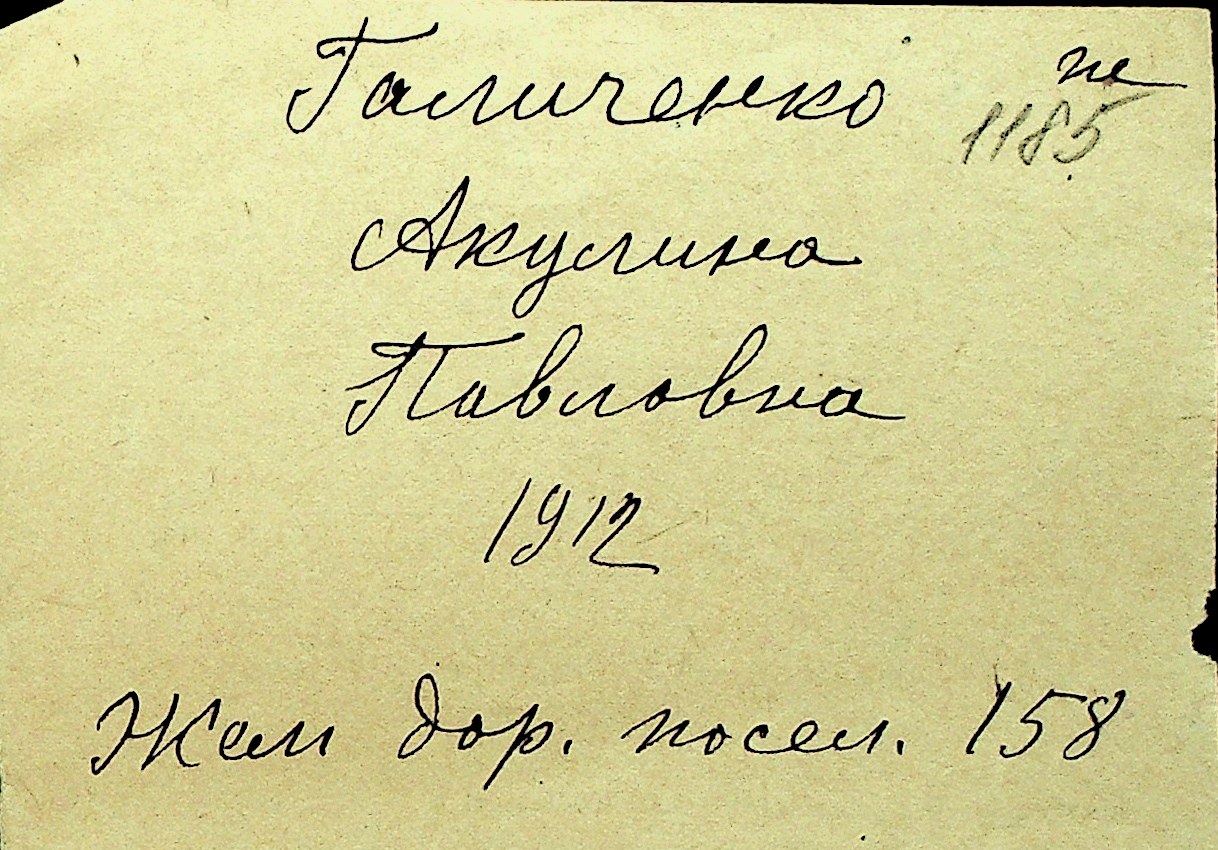 Галиченко
1185
Акулина
Павловна
1912
Жел дор. посел. 158